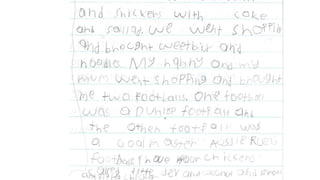 and snickers with coke
and sallad. we went shoppin
and brought weetbix and
noodle. My nanny and my
mum went shopping and brought
me two footballs. One football
was a Dunlop football and
the other football was
a Goalmaster AUSSIE RULES
football I have four chickens
and